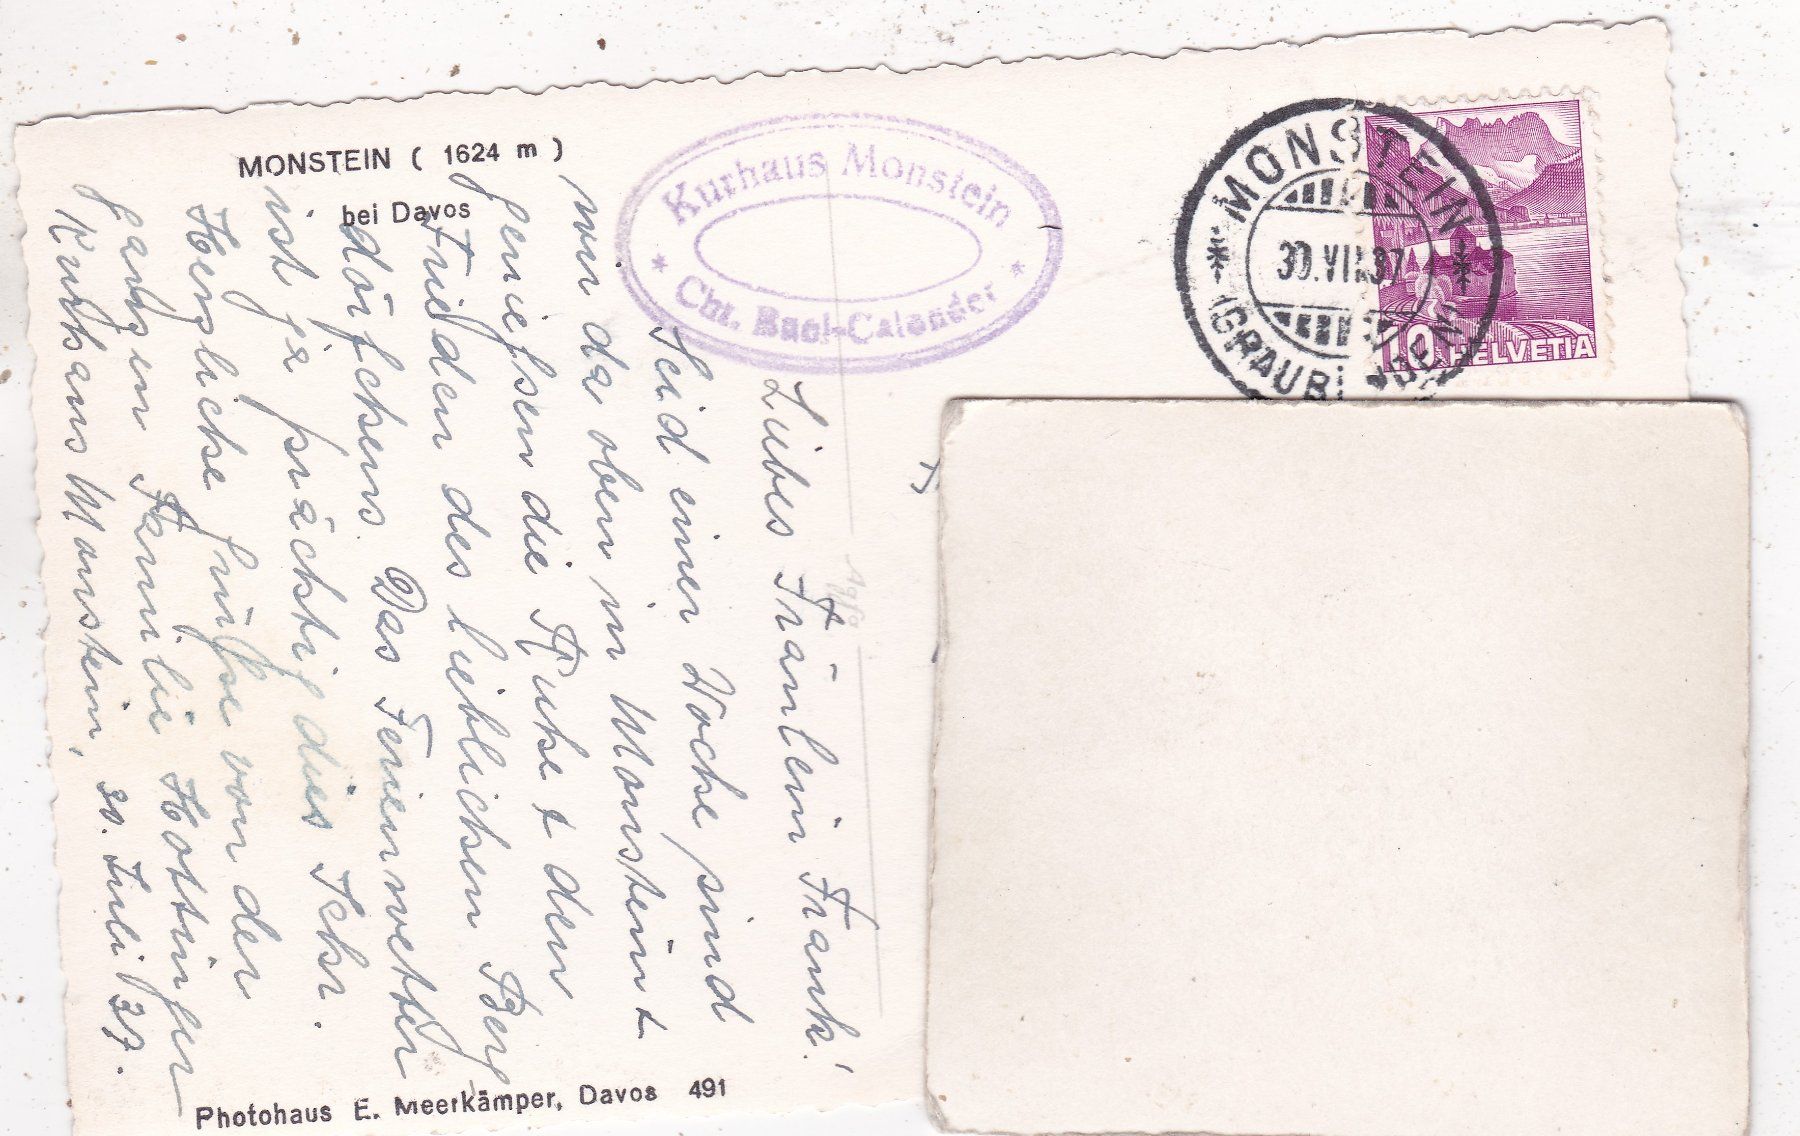 MONSTEIN ( 1624 m )
bei Davos
Kurhaus Monstein
Chr. Buol-Calonder
MONSTEIN
30.VII.37
(GRAUBÜNDEN)
10 HELVETIA
Liebes Fräulein Frank!
Seid einer Woche sind
wir da oben in Monstein &
geniessen die Ruhe & den
Frieden des lieblichen Berg
dörfchens. Das Ferienwetter
ist ja prächtig dies Jahr.
Herzliche Grüsse von der
ganzen Familie Hottinger
Kurhaus Monstein, 30. Juli 37.
Agfa
Photohaus E. Meerkämper, Davos 491